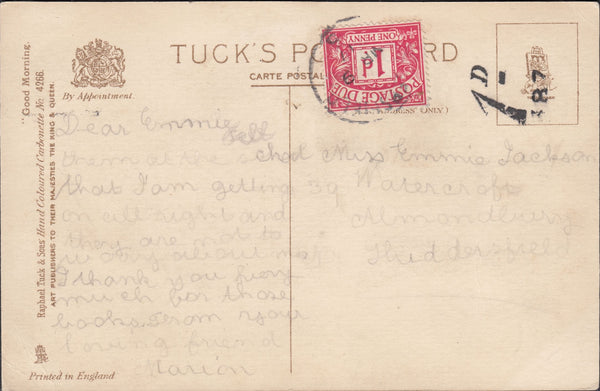 "Good Morning."
Raphael Tuck & Sons Hand Coloured Carbonette No. 4266.
ART PUBLISHERS TO THEIR MAJESTIES THE KING & QUEEN.
By Appointment.
TUCK'S PO RD
CARTE POSTAL
ONLY)
POSTAGE DUE
1d
ONE PENNY
1D
487
Dear Emmie
tell
them at the
that I am getting
on all right and
they are not to
worry about me
I thank you very
much for those
books. From your
loving friend
Marion
Miss Emmie Jackson
39 Watercroft
Almondbury
Huddersfield
Printed in England